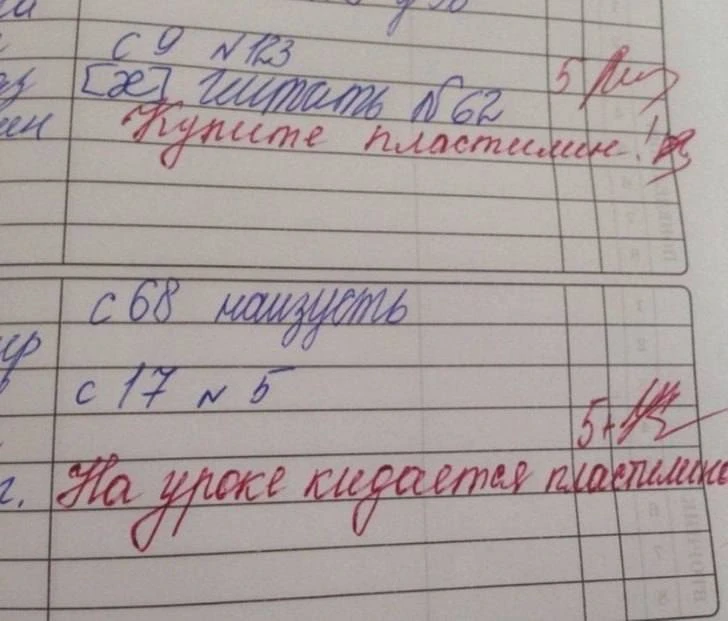 с 9 №123
[х] читать №62
5
Купите пластилин!
с 68 наизусть
с 17 № 5
5+
г. На уроке кидается пластилин